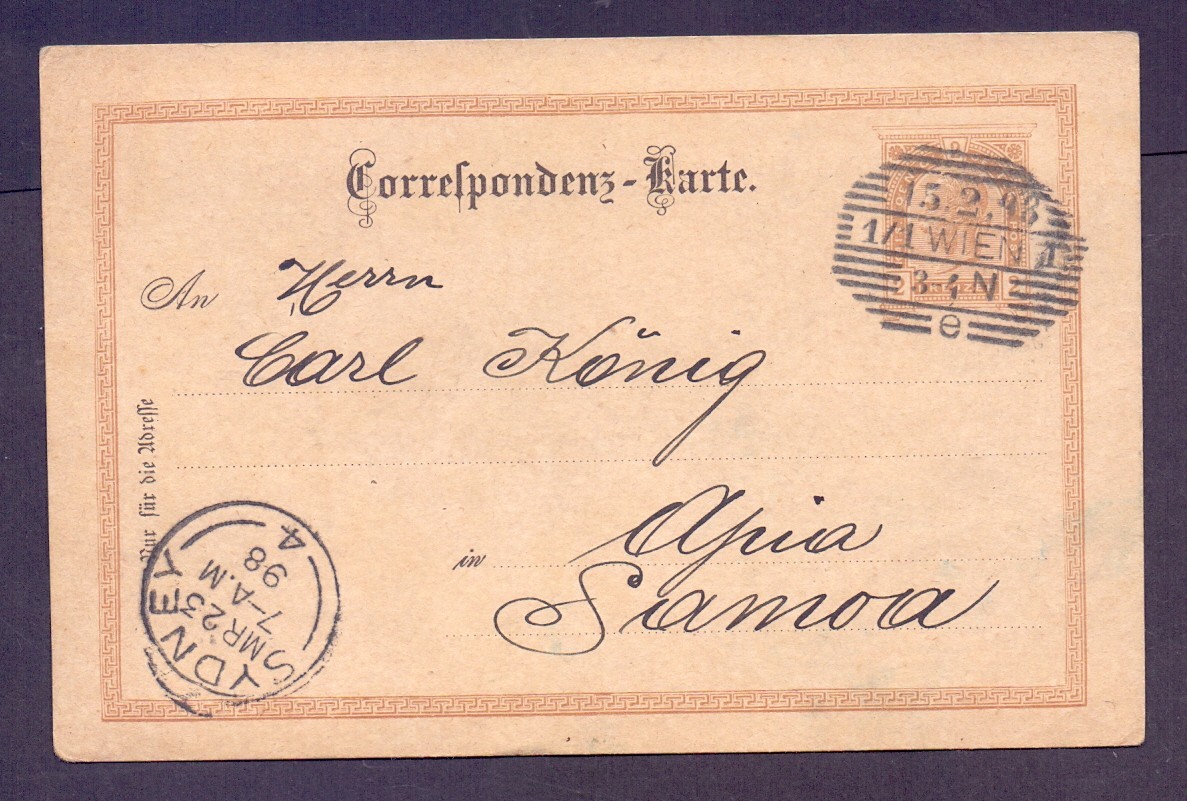 Correspondenz-Karte.
15.2.98
1/1 WIEN 1
3-4 N
e
2 2
An Herrn
Carl König
in Apia
Samoa
Nur für die Adresse
SYDNEY
MR 23
7-A.M
98
4